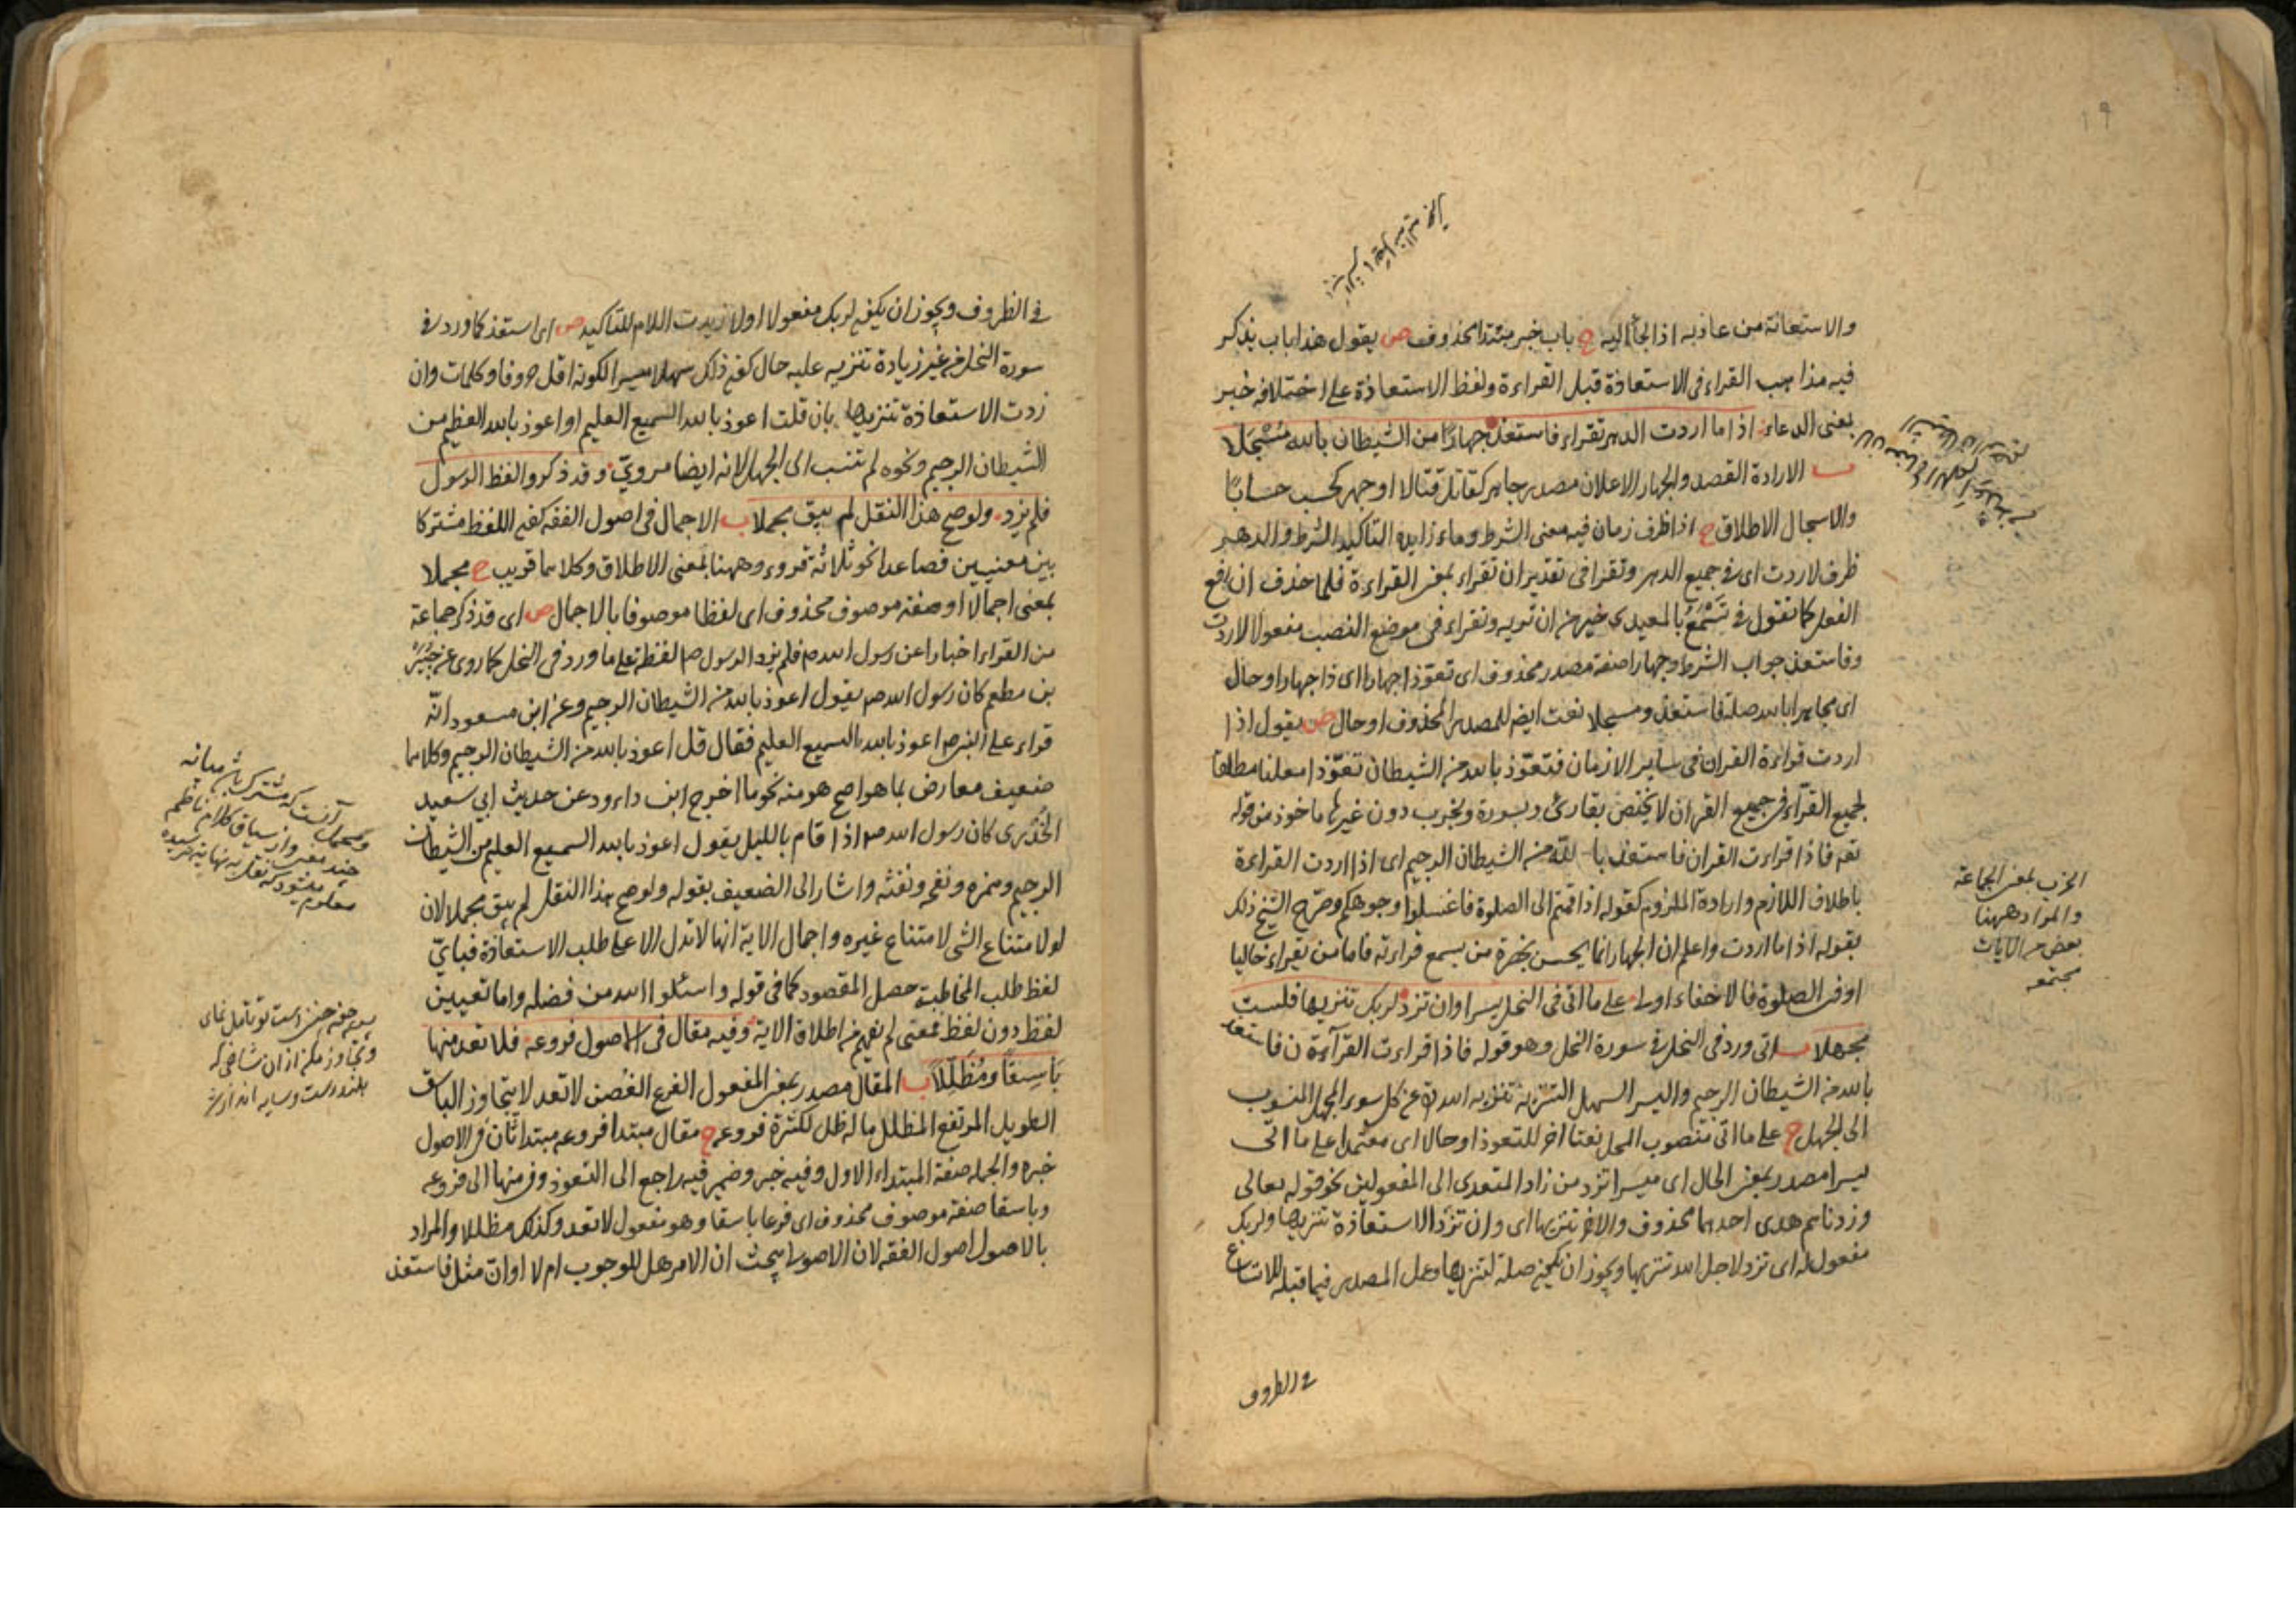 ١٩
والاستعانة من عاذ به اذا لجأ اليه ح باب خبر مبتدا محذوف ص يقول هذا باب يذكر
فيه مذاهب القراء فى الاستعاذة قبل القراءة ولفظ الاستعاذة على اختلافه خبر
بمعنى الدعاء اذا ما اردت الدهر تقراء فاستعذ جهارًا من الشيطان بالله مُسْجَلا
ب الارادة القصد والجهار الاعلان مصدر جاهر كقاتل قتالا او جهر كحسب حسابًا
والاسجال الاطلاق ح اذا ظرف زمان فيه معنى الشرط وما زايدة لتاكيد الشرط والدهر
ظرف لاردت اى فى جميع الدهر وتقرا فى تقدير ان تقراء بمعنى القراءة فلما حذف ان رفع
الفعل كما تقول فى تَسْمَعُ بالمعيدى خير من ان تريه وتقراء فى موضع النصب مفعولا لاردت
وفاستعذ جواب الشرط وجهارا صفة مصدر محذوف اى تعوّذا جهارا اى ذا جهار او حال
اى مجاهرا بالله صلة فاستعذ ومسجلا نعت ايضا للمصدر المحذوف او حال ص يقول اذا
اردت قراءة القران فى ساير الازمان فتعوّذ بالله من الشيطان تعوّذا معلنا مطلقا
لجميع القرّاء فى جميع القران لا يختص بقارئ وبسورة وبحزب دون غيرها ماخوذ من قوله
تعم فاذا قراءت القران فاستعذ بالله من الشيطان الرجيم اى اذا اردت القراءة
باطلاق اللازم وارادة الملزوم كقوله اذا قمتم الى الصلوة فاغسلوا وجوهكم وصرّح الشيخ ذلك
بقوله اذا ما اردت واعلم ان الجهار انما يحسن بحضرة من يسمع قراءته فاما من يقراء خاليا
او فى الصلوة فالاخفاء اولى على ما اتى فى النحل يسرا وان تزد لربك تنزيها فلست
مجهلا ب اتى ورد فى النحل فى سورة النحل وهو قوله فاذا قراءت القرآءة ن فاستعذ
بالله من الشيطان الرجيم واليسر السهل التنزيه تنزيه الله عن كل سوء المجهل المنسوب
الى الجهل ح على ما اتى منصوب المحل نعتا اخر للتعوذ او حالا اى معتمدا على ما اتى
يسرا مصدر بمعنى الحال اى ميسرا تزد من زاد المتعدى الى المفعولين نحو قوله تعالى
وزدناهم هدى احدهما محذوف والاخر تنزيها اى وان تزد الاستعاذة تنزيها ولربك
مفعول له اى تزد لاجل الله تنزيها ويجوز ان يكون صلة لتنزيها وعمل المصدر فيما قبله للاتساع
فى الظروف
الحزب بمعنى الجماعة
والمراد ههنا
بعض من الايات
مجتمعه
فى الظروف ويجوز ان يكون لربك مفعولا اولا زيدت اللام للتاكيد ص اى استعذ كما ورد فى
سورة النحل من غير زيادة تنزيه عليه حال كون ذلك سهلا ميسرا لكونه اقل حروفا وكلمات وان
زدت الاستعاذة تنزيها بان قلت اعوذ بالله السميع العليم او اعوذ بالله العظيم من
الشيطان الرجيم ونحوه لم تنسب الى الجهل لانه ايضا مروىّ وقد ذكروا لفظ الرسول
فلم يزد ولو صح هذا النقل لم يبق مجملا ب الاجمال فى اصول الفقه كون اللفظ مشتركا
بين معنيين فصاعدا نحو ثلاثة قروء وههنا بمعنى الاطلاق وكلاهما قريب ح مجملا
بمعنى اجمالا او صفة موصوف محذوف اى لفظا موصوفا بالاجمال ص اى قد ذكر جماعة
من القراء اخبارا عن رسول الله م فلم يزد الرسول م لفظه على ما ورد فى النحل كما روى عن جُبَيْر
بن مطعم كان رسول الله م يقول اعوذ بالله من الشيطان الرجيم وعن ابن مسعود انّه
قراء على النبى م اعوذ بالله السميع العليم فقال قل اعوذ بالله من الشيطان الرجيم وكلاهما
ضعيف معارض بما هو اصح هو منه نحو ما اخرج ابن داءود عن حديث ابى سعيد
الخُدْرى كان رسول الله م اذا قام بالليل يقول اعوذ بالله السميع العليم من الشيطان
الرجيم وهمزه ونفخه ونفثه واشار الى الضعيف بقوله ولو صح هذا النقل لم يبق مجملا لان
لو لامتناع الشى لامتناع غيره واجمال الاية انها لا تدل الا على طلب الاستعاذة فباىّ
لفظ طلب المخاطبة حصل المقصود كما فى قوله واسئلوا الله من فضله واما تعيين
لفظ دون لفظ بمعنى لم يفهم من اطلاق الاية وفيه مقال فى الاصول فروعه فلا تعد منها
بَاسِقًا ومُظَلِّلاً ب المقال مصدر بمعنى المفعول الفرع الغُصن لا تعد لا يتجاوز الباسق
الطويل المرتفع المظلل ماله ظل لكثرة فروعه ح مقال مبتدا فروعه مبتدا ثان فى الاصول
خبره والجملة صفة المبتداء الاول وفيه خبر وضمير فيه راجع الى التعوذ وفى منها الى فروعه
وباسقا صفة موصوف محذوف اى فرعا باسقا وهو مفعول لا تعد وكذلك مظللا والمراد
بالاصول اصول الفقه لان الاصولى يبحث ان الامر هل للوجوب ام لا اوانّ مثل فاستعذ
ومجمل آنست كه مشترك باشد ميانه
چند معنى واز سياق كلام ناظم